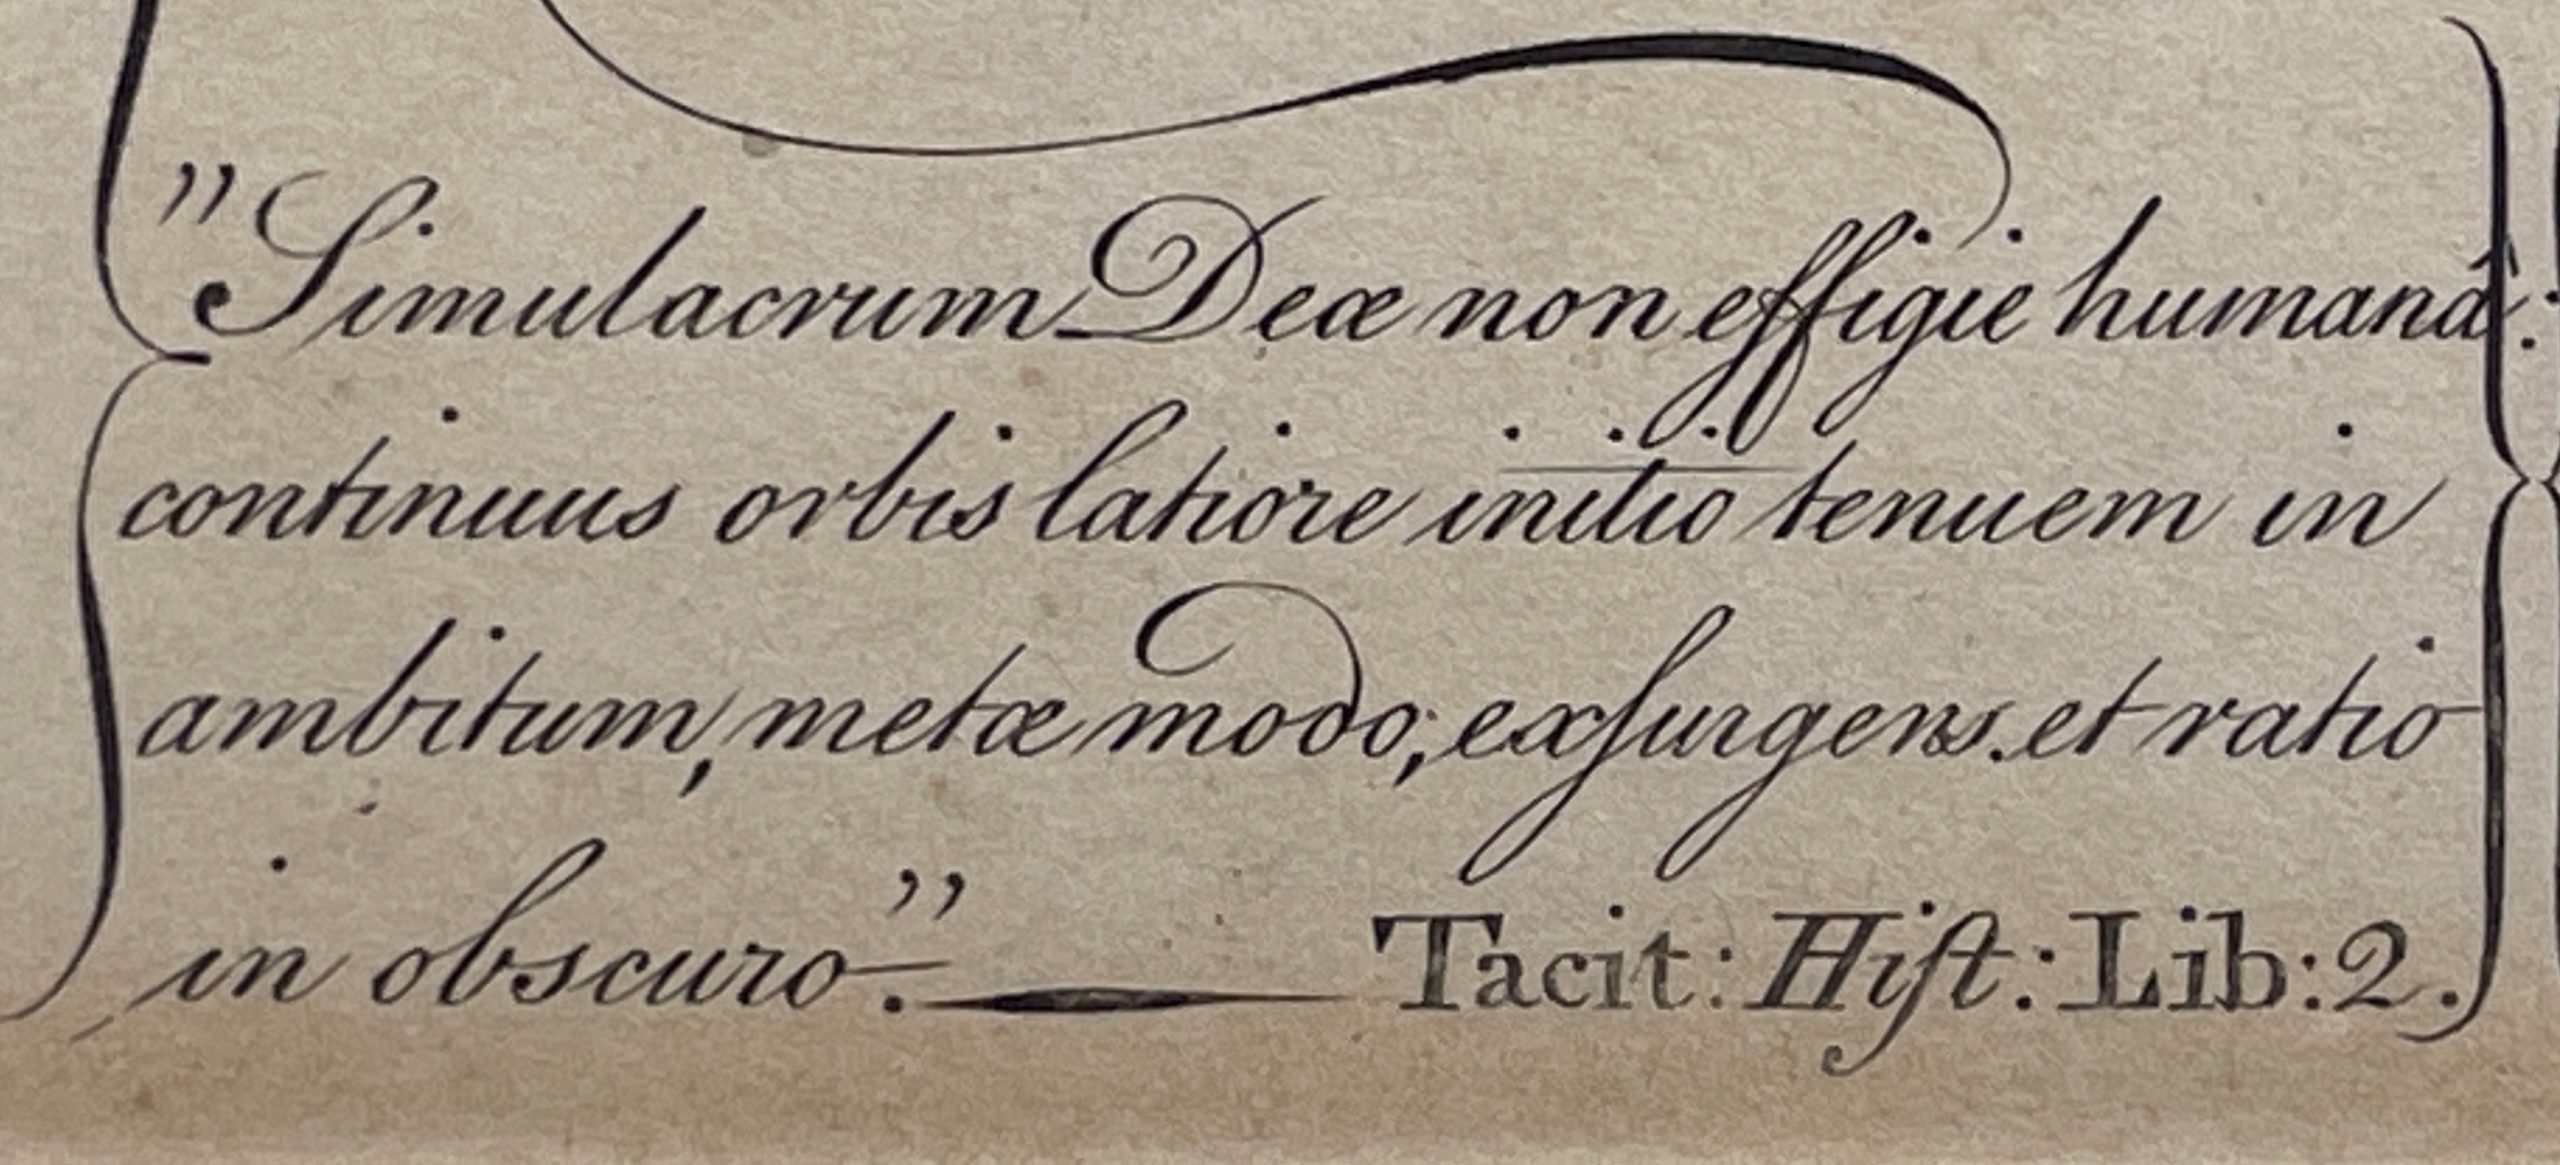 "Simulacrum Deæ non effigie humanâ:
continuus orbis latiore initio tenuem in
ambitum, metæ modo, exſurgens. et ratio
in obscuro." — Tacit: Hiſt: Lib: 2.